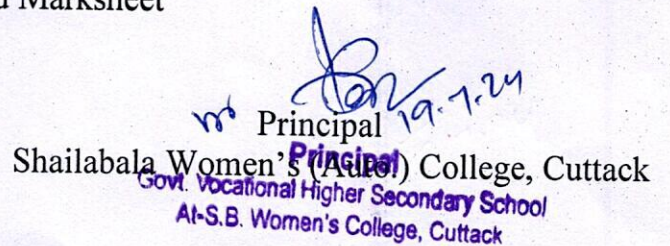 Marksheet
19.7.24
Principal
Shailabala Women's (Auto.) College, Cuttack
Principal
Govt. Vocational Higher Secondary School
At-S.B. Women's College, Cuttack